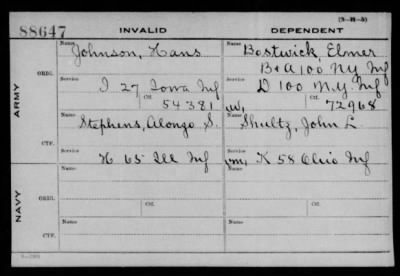 (3-H-5)
88647 INVALID DEPENDENT
Name Johnson, Hans Name Bostwick, Elmer
B & A 100 N.Y. Inf
ORIG. Service I 27 Iowa Inf Service D 100 N.Y. Inf
Ctf. 54381 W, Ctf. 72968
ARMY
Name Stephens, Alonzo S. Name Shultz, John L
CTF. Service K 65 Ill Inf Service (m) K 58 Ohio Inf
Name Name
ORIG.
NAVY
Ctf. Ctf.
Name Name
CTF.